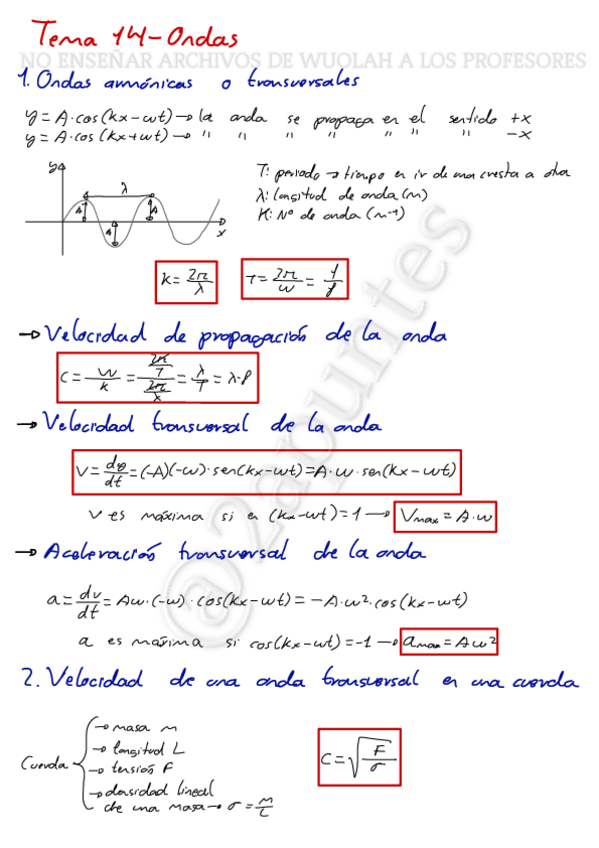 Tema 14 - Ondas
NO ENSEÑAR ARCHIVOS DE WUOLAH A LOS PROFESORES
1. Ondas armónicas o transversales
y = A·cos(kx-wt) → la onda se propaga en el sentido +x
y = A·cos(kx+wt) → " " " " " " " -x
y
λ
A A A
x
T: periodo → tiempo en ir de una cresta a otra
λ: longitud de onda (m)
K: Nº de onda (m⁻¹)
k = 2π/λ T = 2π/w = 1/f
→ Velocidad de propagación de la onda
c = w/k = (2π/T)/(2π/λ) = λ/T = λ·f
→ Velocidad transversal de la onda
v = dy/dt = (-A)(-w)·sen(kx-wt) = A·w·sen(kx-wt)
v es máxima si en (kx-wt) = 1 → Vmax = A·w
→ Aceleración transversal de la onda
a = dv/dt = Aw·(-w)·cos(kx-wt) = -A·w²·cos(kx-wt)
a es máxima si cos(kx-wt) = -1 → amax = Aw²
2. Velocidad de una onda transversal en una cuerda
Cuerda
→ masa m
→ longitud L
→ tensión F
→ densidad lineal
de una masa → σ = m/L
c = √(F/σ)
@2apuntes